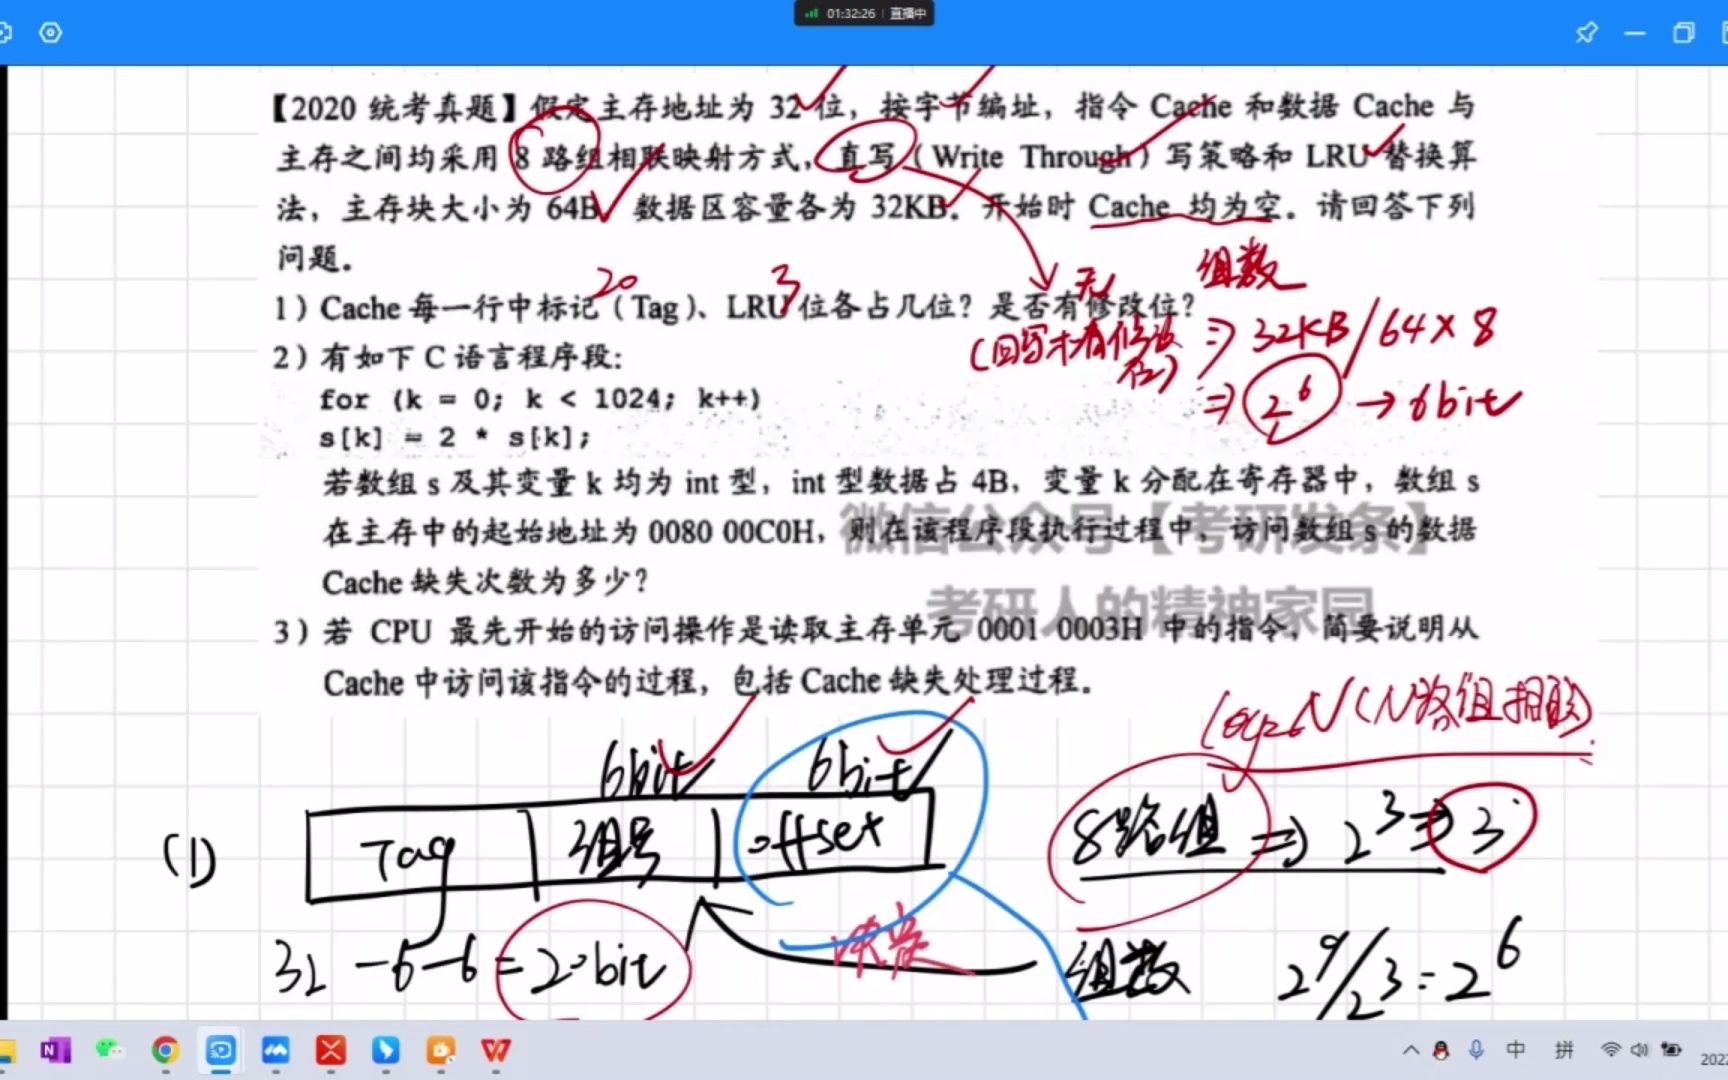 01:32:26 直播中
【2020 统考真题】假定主存地址为 32 位，按字节编址，指令 Cache 和数据 Cache 与
主存之间均采用 8 路组相联映射方式，直写（Write Through）写策略和 LRU 替换算
法，主存块大小为 64B，数据区容量各为 32KB。开始时 Cache 均为空。请回答下列
问题。
组数
20 3 无
1）Cache 每一行中标记（Tag）、LRU 位各占几位？是否有修改位？
（回写才有修改位）
⇒ 32KB/64×8
⇒ 2^6 → 6bit
2）有如下 C 语言程序段：
for (k = 0; k < 1024; k++)
s[k] = 2 * s[k];
若数组 s 及其变量 k 均为 int 型，int 型数据占 4B，变量 k 分配在寄存器中，数组 s
在主存中的起始地址为 0080 00C0H，则在该程序段执行过程中，访问数组 s 的数据
Cache 缺失次数为多少？
微信公众号【考研发条】
考研人的精神家园
3）若 CPU 最先开始的访问操作是读取主存单元 0001 0003H 中的指令，简要说明从
Cache 中访问该指令的过程，包括 Cache 缺失处理过程。
log2N（N路组相联）
6bit 6bit
(1) Tag 组号 offset
8路组 ⇒ 2^3 ⇒ 3
32-6-6=20bit
组数 2^9/2^3=2^6
中 拼